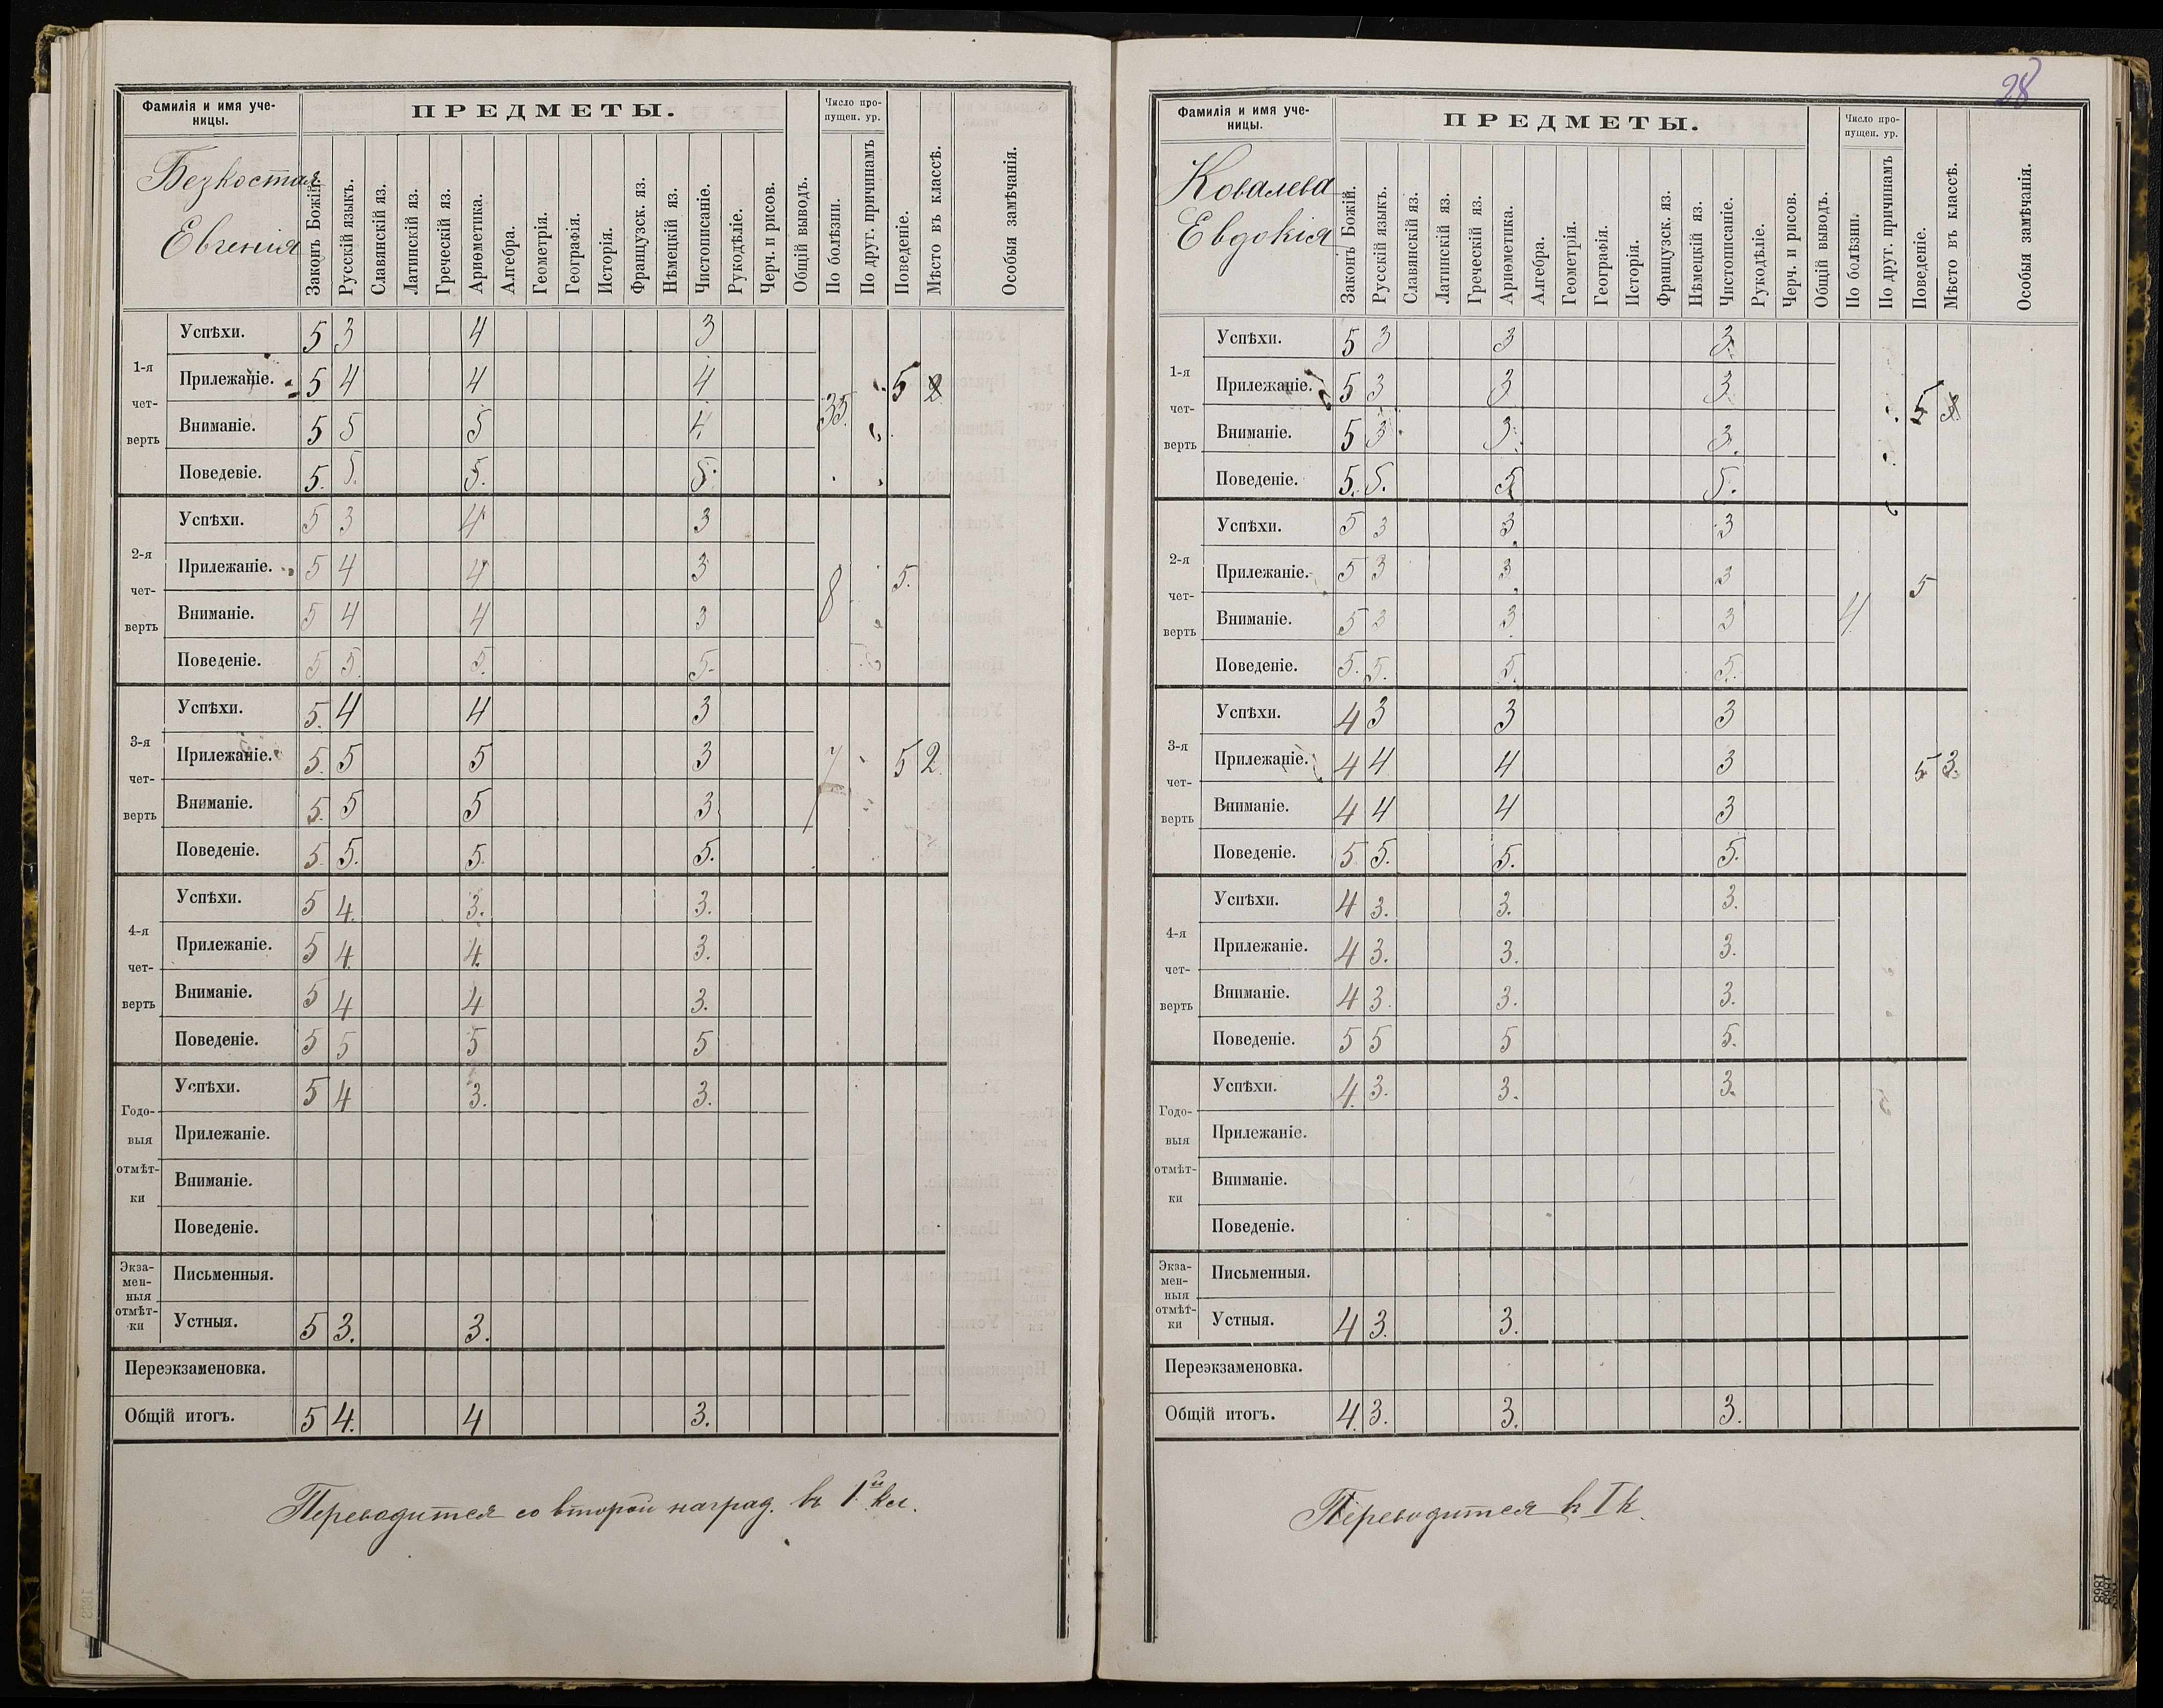 Фамилія и имя уче-
ницы.
ПРЕДМЕТЫ.
Число про-
пущен. ур.
Безкостая
Евгенія
Законъ Божій.
Русскій языкъ.
Славянскій яз.
Латинскій яз.
Греческій яз.
Ариѳметика.
Алгебра.
Геометрія.
Географія.
Исторія.
Французск. яз.
Нѣмецкій яз.
Чистописаніе.
Рукодѣліе.
Черч. и рисов.
Общій выводъ.
По болѣзни.
По друг. причинамъ
Поведеніе.
Мѣсто въ классѣ.
Особыя замѣчанія.
1-я
чет-
верть
Успѣхи. 5 3 4 3
Прилежаніе. 5 4 4 4 5 2
Вниманіе. 5 5 5 4 35.
Поведевіе. 5. 5. 5. 5.
2-я
чет-
верть
Успѣхи. 5 3 4 3
Прилежаніе. 5 4 4 3 8 5.
Вниманіе. 5 4 4 3
Поведеніе. 5 5. 5. 5.
3-я
чет-
верть
Успѣхи. 5. 4 4 3
Прилежаніе. 5. 5 5 3 7 5 2
Вниманіе. 5. 5 5 3
Поведеніе. 5. 5. 5. 5.
4-я
чет-
верть
Успѣхи. 5 4. 3. 3.
Прилежаніе. 5 4. 4. 3.
Вниманіе. 5 4 4 3.
Поведеніе. 5 5 5 5
Годо-
выя
отмѣт-
ки
Успѣхи. 5 4 3. 3.
Прилежаніе.
Вниманіе.
Поведеніе.
Экза-
мен-
ныя
отмѣт-
ки
Письменныя.
Устныя. 5 3. 3.
Переэкзаменовка.
Общій итогъ. 5 4. 4 3.
Переводится со второй наград. въ 1й кл.
28
Фамилія и имя уче-
ницы.
ПРЕДМЕТЫ.
Число про-
пущен. ур.
Ковалева
Евдокія
Законъ Божій.
Русскій языкъ.
Славянскій яз.
Латинскій яз.
Греческій яз.
Ариѳметика.
Алгебра.
Геометрія.
Географія.
Исторія.
Французск. яз.
Нѣмецкій яз.
Чистописаніе.
Рукодѣліе.
Черч. и рисов.
Общій выводъ.
По болѣзни.
По друг. причинамъ
Поведеніе.
Мѣсто въ классѣ.
Особыя замѣчанія.
1-я
чет-
верть
Успѣхи. 5 3 3 3.
Прилежаніе. 5 3 3 3 5
Вниманіе. 5 3 3. 3.
Поведеніе. 5. 5. 5 5.
2-я
чет-
верть
Успѣхи. 5 3 3. 3
Прилежаніе. 5 3 3 3 5
Вниманіе. 5 3 3 3 4.
Поведеніе. 5. 5. 5. 5.
3-я
чет-
верть
Успѣхи. 4 3 3 3
Прилежаніе. 4 4 4 3 5 3.
Вниманіе. 4 4 4 3
Поведеніе. 5 5. 5. 5.
4-я
чет-
верть
Успѣхи. 4 3. 3. 3.
Прилежаніе. 4 3. 3. 3.
Вниманіе. 4 3. 3. 3.
Поведеніе. 5 5 5 5.
Годо-
выя
отмѣт-
ки
Успѣхи. 4. 3. 3. 3.
Прилежаніе.
Вниманіе.
Поведеніе.
Экза-
мен-
ныя
отмѣт-
ки
Письменныя.
Устныя. 4 3. 3.
Переэкзаменовка.
Общій итогъ. 4. 3. 3. 3.
Переводится въ I к.
1868